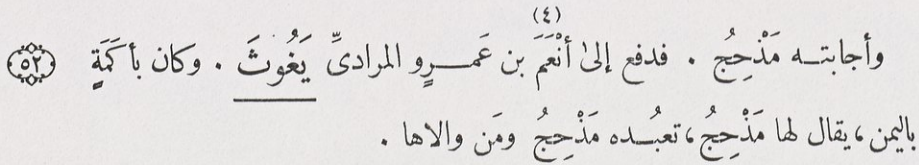 (٤)
وأجابتـه مَذْحِجُ . فدفع إلىٰ أَنْعَمَ بن عَمـرٍو المرادىِّ يَغُوثَ . وكان بأَكَمَةٍ ٥٢
باليمن، يقال لها مَذْحِجُ، تعبُـده مَذْحِجُ ومَن والاها .